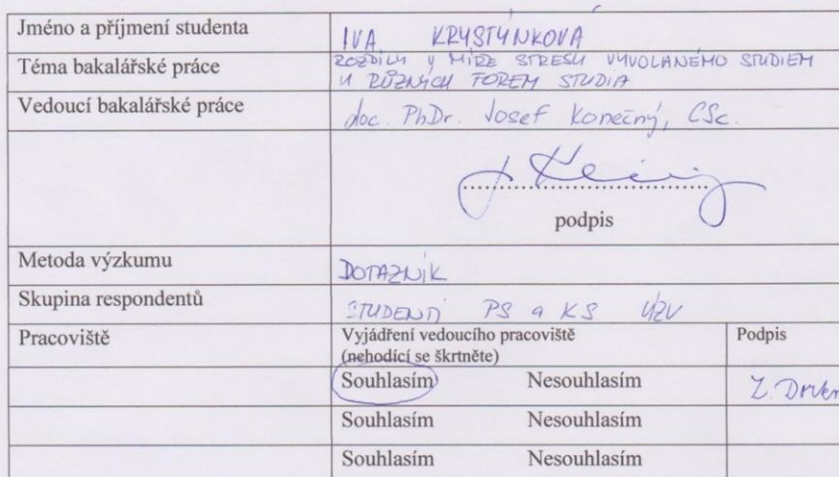 Jméno a příjmení studenta
IVA KRYSTÝNKOVÁ
Téma bakalářské práce
ROZDÍLY V MÍŘE STRESU VYVOLANÉHO STUDIEM
U RŮZNÝCH FOREM STUDIA
Vedoucí bakalářské práce
doc. PhDr. Josef Konečný, CSc.
podpis
Metoda výzkumu
DOTAZNÍK
Skupina respondentů
STUDENTI PS a KS ÚZV
Pracoviště
Vyjádření vedoucího pracoviště
(nehodící se škrtněte)
Podpis
Souhlasím Nesouhlasím
Souhlasím Nesouhlasím
Souhlasím Nesouhlasím